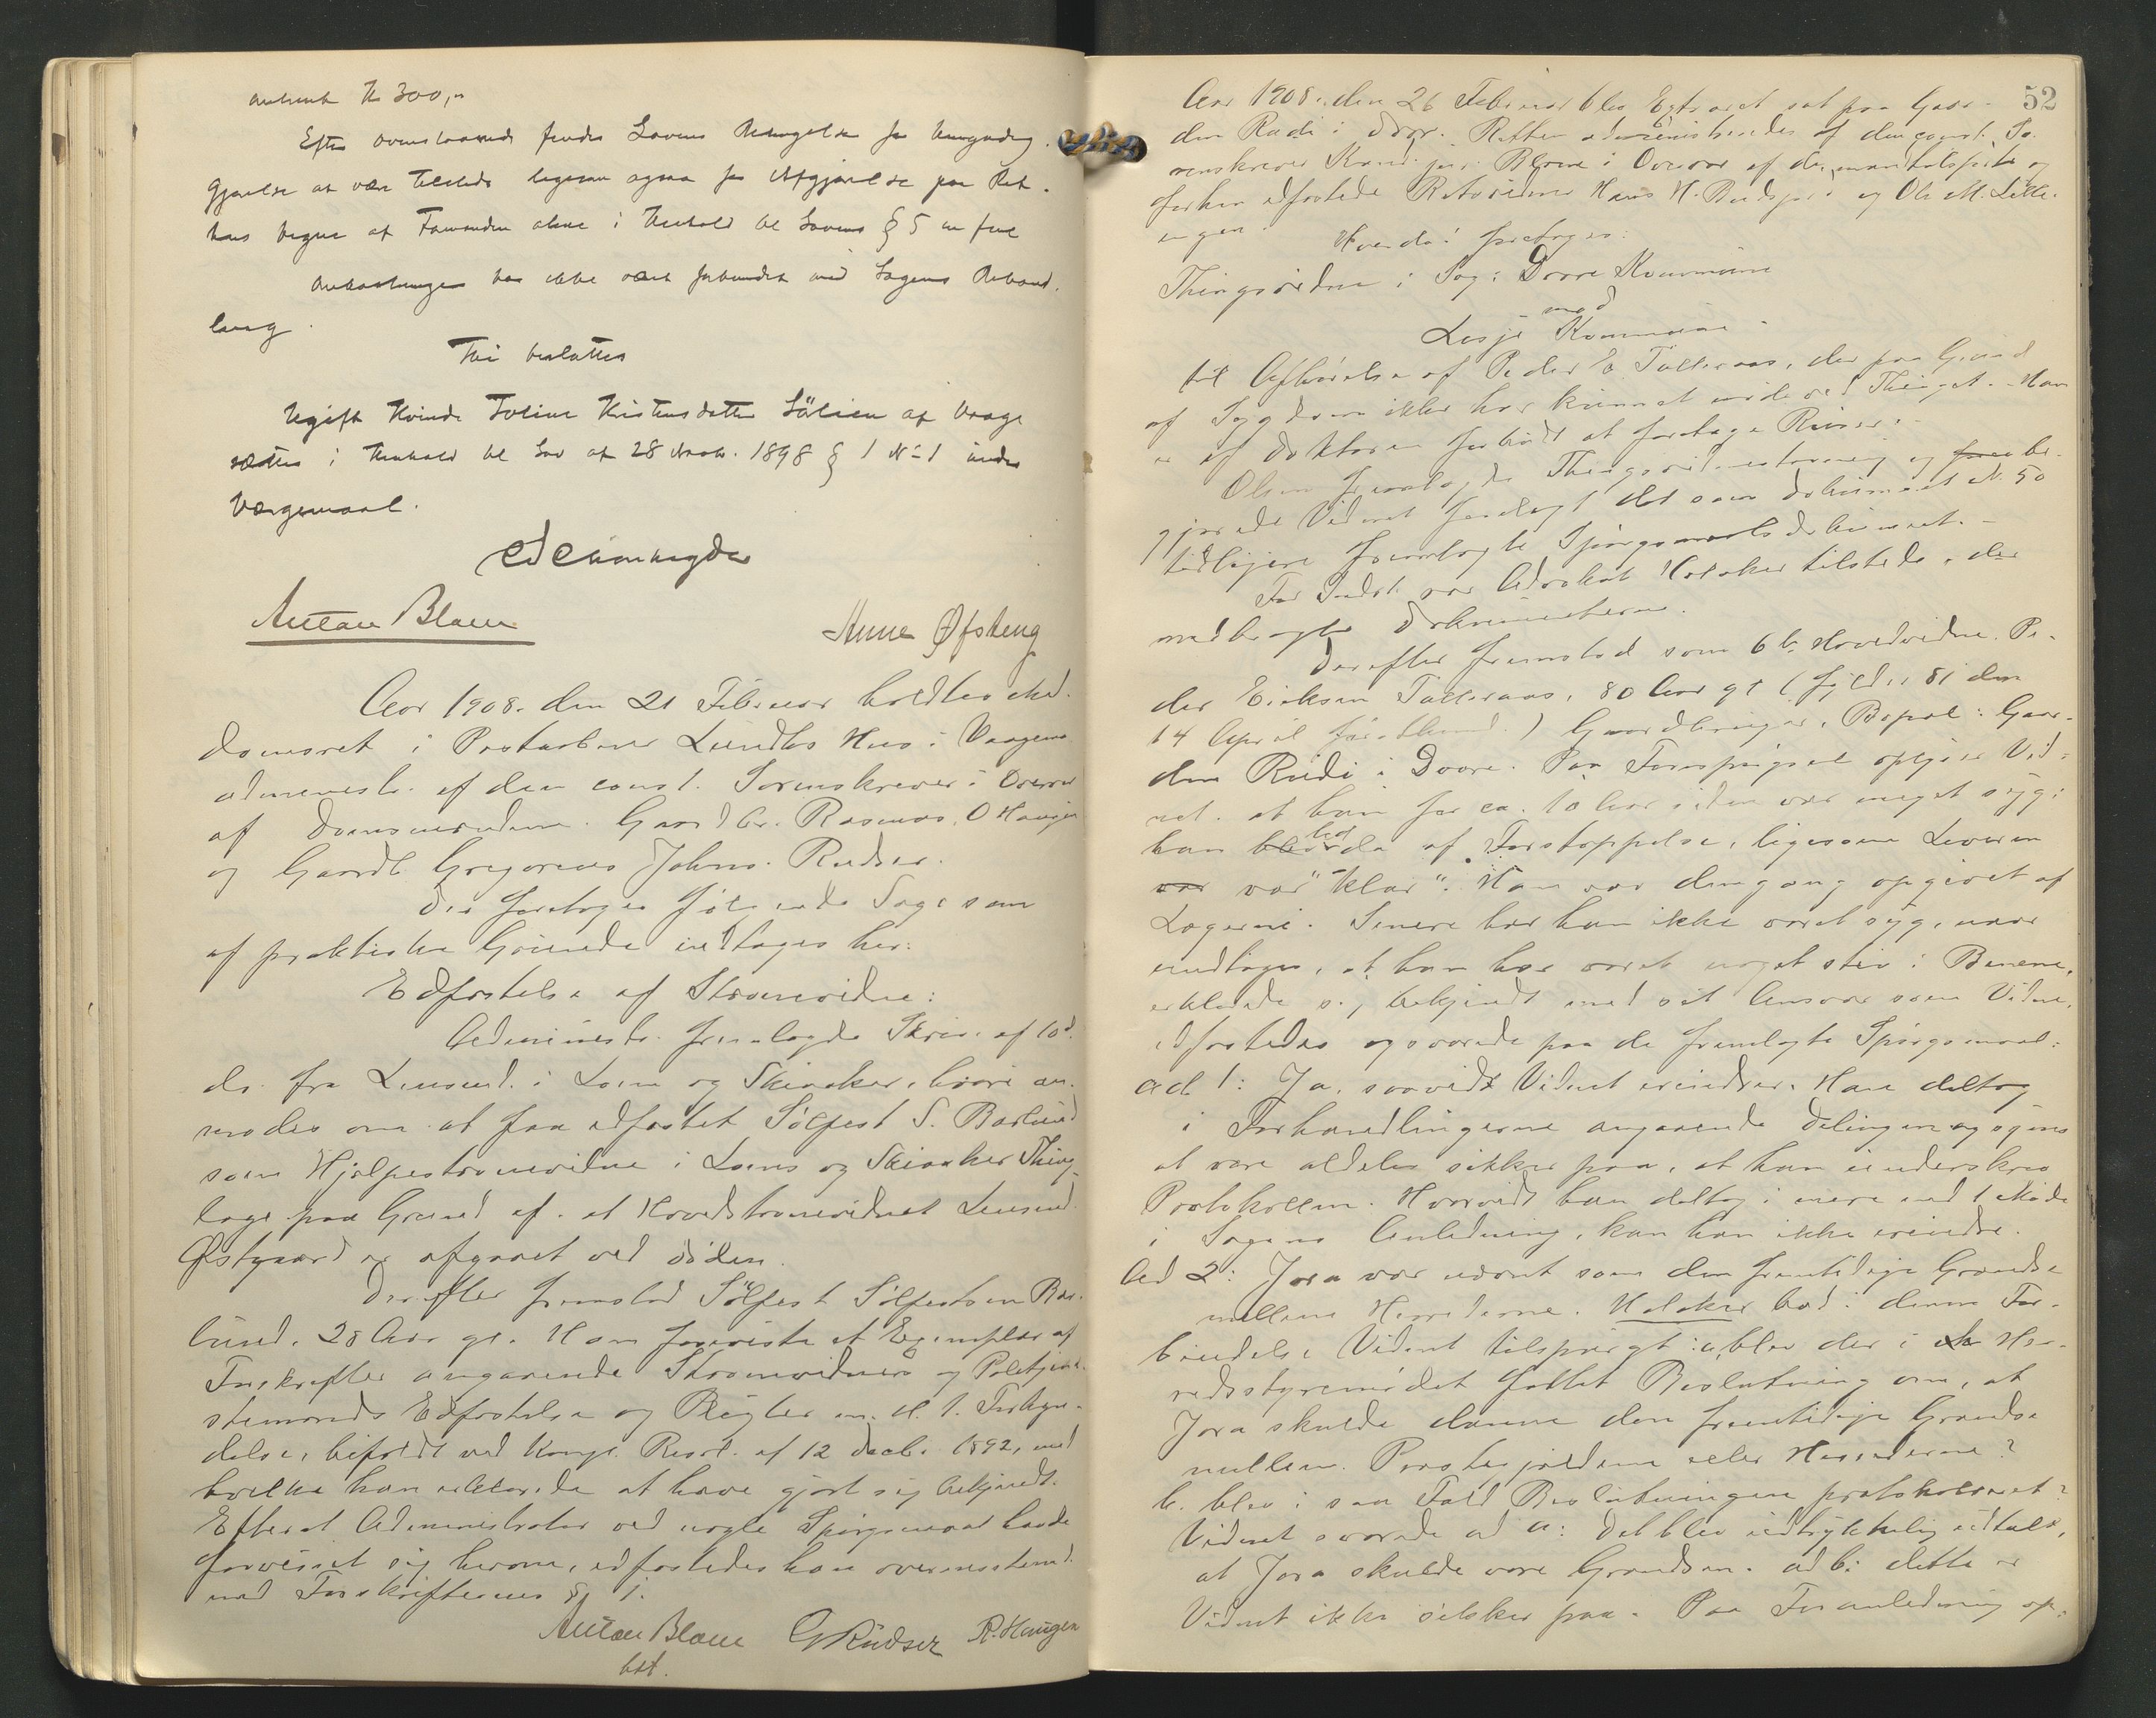 anhent Kr 300,-
Efter ovenstaaende findes Lovens Betingelser for Umyndig-
gjørelse at være tilstede ligesom ogsaa for Afgjørelse paa Ret-
tens Vegne af Formanden alene i Henhold til Lovens § 5 in fine
Omkostninger har ikke været forbundet med Sagens Behand-
ling.
Thi besluttes
Ugift Kvinde Toline Kristensdatter Sålien af Vaage
sættes i Henhold til Lov af 28 Novb. 1898 § 1 № 1 under
Værgemaal.
Anton Blom
Anne Øfsteng
Aar 1908. den 21 Februar holdtes Med-
domsret i Postaabner Lundbs Hus i Vaage
administr. af den const. Sorenskriver i Overvær
af Domsmændene Gaardbr. Rasmus O Haugen
og Gaardb. Gregorius Johns. Rudser.
Der foretoges følgende Sag som
af praktiske Grunde indtages her:
Edfæstelse af Stævnevidne:
Administr. fremlagde Skriv. af 10d.
ds. fra Lensmd. i Lom og Skiaaker, hvori an-
modes om at faa edfæstet Sølfest S. Barlund
som Hjælpestævnevidne i Loms og Skiaaker Thing-
lage paa Grund af at Hovedstævnevidnet Lensmd.
Østgaard er afgaaet ved Døden.
Derefter fremstod Sølfest Sølfestsen Bar-
lund, 28 Aar gl. Han foreviste et Exemplar af
Forskrifter angaaende Stævnevidners og Politjene-
stemænds Edfæstelse og Pligter m. M. f. Forkyn-
delse, bifaldt ved Kongl. Resol. af 12 Decb. 1892, med
hvilke han erklærede at have gjort sig bekjendt.
Efterat Administrator ved nogle Spørgsmaal havde
forvisset sig herom, edfæstedes han overensstemd.
med Forskrifternes § 1.
Anton Blom GRudser R. Haugen
bst.
52
Aar 1908. den 26 Februar blev Extraret sat paa Gaar-
den Rudi i Dovre. Retten administreredes af den const. So-
renskriver Kand. jur. Blom i Overvær af de mandtalsførte og
forhen edfæstede Retsvidner Hans H. Budsjord og Ole M. Lille-
engen.
Hvorda! foretoges:
Thingsvidne i Sag: Dovre Kommune
mod
Lesje Kommune
til Afhørelse af Peder E Talleraas, der paa Grund
af Sygdom ikke har kunnet møde ved Thinget. Han
er af Doktoren forbudt at foretage Reiser.
Olsen fremlagde Thingsvidnestævning og be-
gjærede Vidnet forelagt det som Dokument № 50
tidligere fremlagte Spørgsmaalsdokument.
For Indst. var Advokat Holaker tilstede, der
medbragte Dokumenterne.
Derefter fremstod som 6te Hovedvidne Pe-
der Eriksen Talleraas, 80 Aar gl (fylder 81 den
14 April førstkomd.) Gaardbruger, Bopæl: Gaar-
den Rudi i Dovre. Paa Forespørgsel opgiver Vid-
net. at han for ca. 10 Aar siden var meget syg:
han led da af Forstoppelse, ligesom Leveren
var "klar". Han var dengang opgivet af
Lægerne. Senere har han ikke været syg, naar
undtages, at han har været noget stiv i Benene,
erklærede sig bekjendt med sit Ansvar som Vidne,
edfæstedes og svarede paa de fremlagte Spørgsmaal:
ad 1: Ja, saavidt Vidnet erindrer. Han deltog
i Forhandlingerne angaaende Delingen og synes
at være aldeles sikker paa, at han underskrev
Protokollen. Hvorvidt han deltog i mere end 1 Møde
i Sagens Anledning, kan han ikke erindre.
Ad 2: Jora var nævnt som den fremtidige Grændse
mellem Herrederne. Holaker bad i denne For-
bindelse Vidnet tilspurgt: a, blev der i Her-
redsstyremødet fattet Beslutning om, at
Jora skulde danne den fremtidige Grændse
mellem Præstegjældene eller Herrederne?
b. blev i saa Fald Beslutningen protokolleret?
Vidnet svarede ad a: Det blev udtrykkelig udtalt,
at Jora skulde være Grændsen. ad b: dette er
Vidnet ikke sikker paa. Paa Foranledning op-